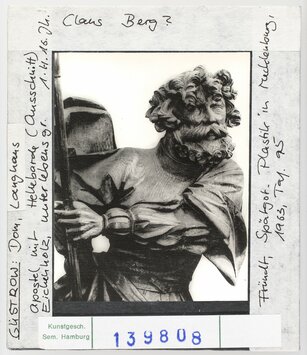 Claus Berg?
GÜSTROW: Dom, Langhaus
Apostel mit Hellebarde (Ausschnitt)
Eichenholz, unterlebensgr. 1. H. 16. Jh.
Hündt, Spätgot. Plastik in Mecklenburg,
1963, Taf. 95
Kunstgesch.
Sem. Hamburg
139808